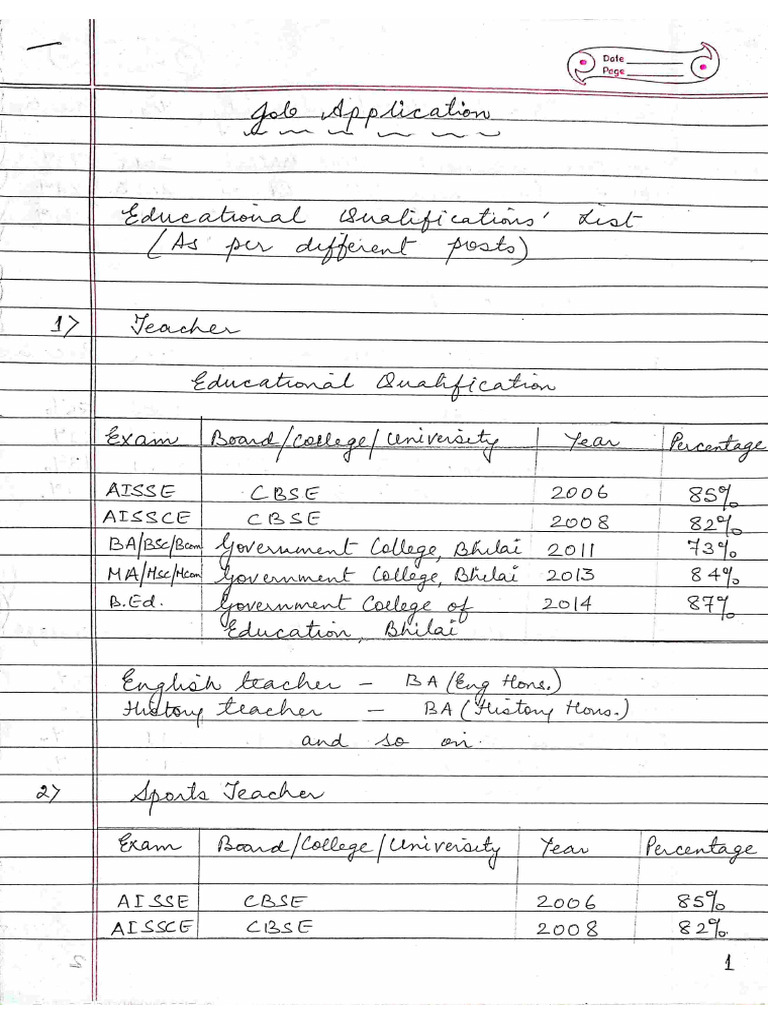 Date
Page
Job Application
Educational Qualifications' List
(As per different posts)
1> Teacher
Educational Qualification
Exam Board/College/University Year Percentage
AISSE CBSE 2006 85%
AISSCE CBSE 2008 82%
BA/BSc/Bcom Government College, Bhilai 2011 73%
MA/MSc/Mcom Government College, Bhilai 2013 84%
B.Ed. Government College of 2014 87%
Education, Bhilai
English teacher – BA (Eng Hons.)
History teacher – BA (History Hons.)
and so on.
2> Sports Teacher
Exam Board/College/University Year Percentage
AISSE CBSE 2006 85%
AISSCE CBSE 2008 82%
1